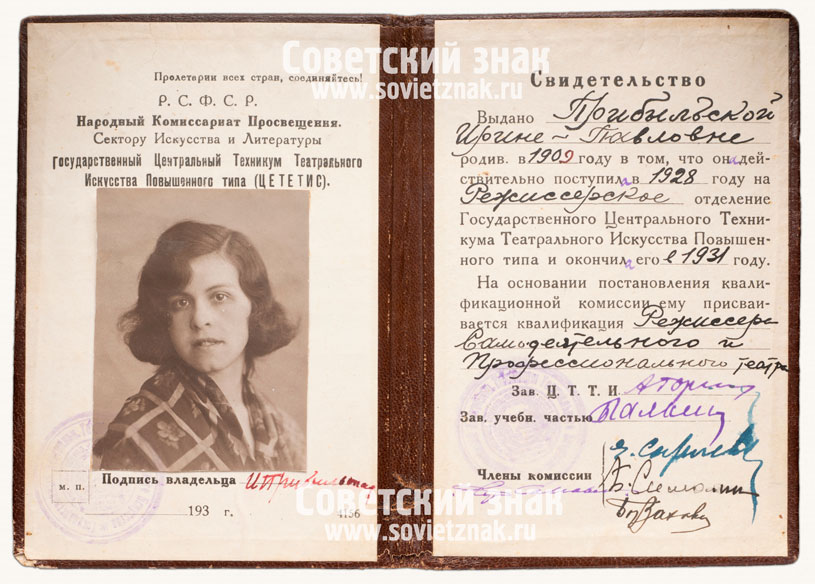 Пролетарии всех стран, соединяйтесь!
Р. С. Ф. С. Р.
Народный Комиссариат Просвещения.
Сектору Искусства и Литературы
Государственный Центральный Техникум Театрального
Искусства Повышенного типа (ЦЕТЕТИС).
м. п.
Подпись владельца
193 г.
4156
Советский знак
www.sovietznak.ru
Свидетельство
Выдано Прибыльской
Ирине Павловне
родив. в 1909 году в том, что она дей-
ствительно поступила в 1928 году на
Режиссерское отделение
Государственного Центрального Техни-
кума Театрального Искусства Повышен-
ного типа и окончила его в 1931 году.
На основании постановления квали-
фикационной комиссии ему присваи-
вается квалификация Режиссера
Самодеятельного и
Профессионального театра
Зав. Ц. Т. Т. И.
Зав. учебн. частью
Члены комиссии
Советский знак
www.sovietznak.ru